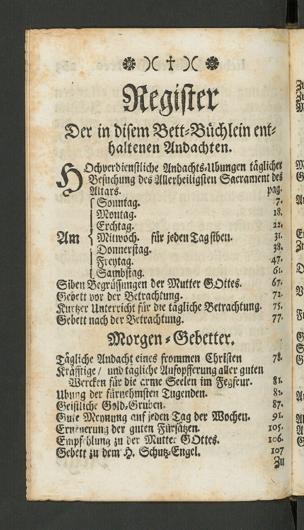 Register
Der in disem Bett-Büchlein ent-
haltenen Andachten.
Hochverdienstliche Andachts-Ubungen täglicher
Besuchung des Allerheiligsten Sacrament des
Altars. pag.
Sonntag. 7.
Montag. 18.
Erchtag. 22.
Am Mitwoch. für jeden Tag siben. 31.
Donnerstag. 38.
Freytag. 47.
Sambstag. 61.
Siben Begrüssungen der Mutter GOttes. 67.
Gebett vor der Betrachtung. 72.
Kurtzer Unterricht für die tägliche Betrachtung. 75.
Gebett nach der Betrachtung. 77.
Morgen-Gebetter.
Tägliche Andacht eines frommen Christen 78.
Kräfftige/ und tägliche Aufopfferung aller guten
Wercken für die arme Seelen im Fegfeur. 81.
Ubung der fürnehmsten Tugenden. 82.
Geistliche Gold-Gruben. 87.
Gute Meynung auf jeden Tag der Wochen. 91.
Erneuerung der guten Fürsätzen. 105.
Empfehlung zu der Mutter GOttes. 106.
Gebett zu dem H. Schutz-Engel. 107
Zu